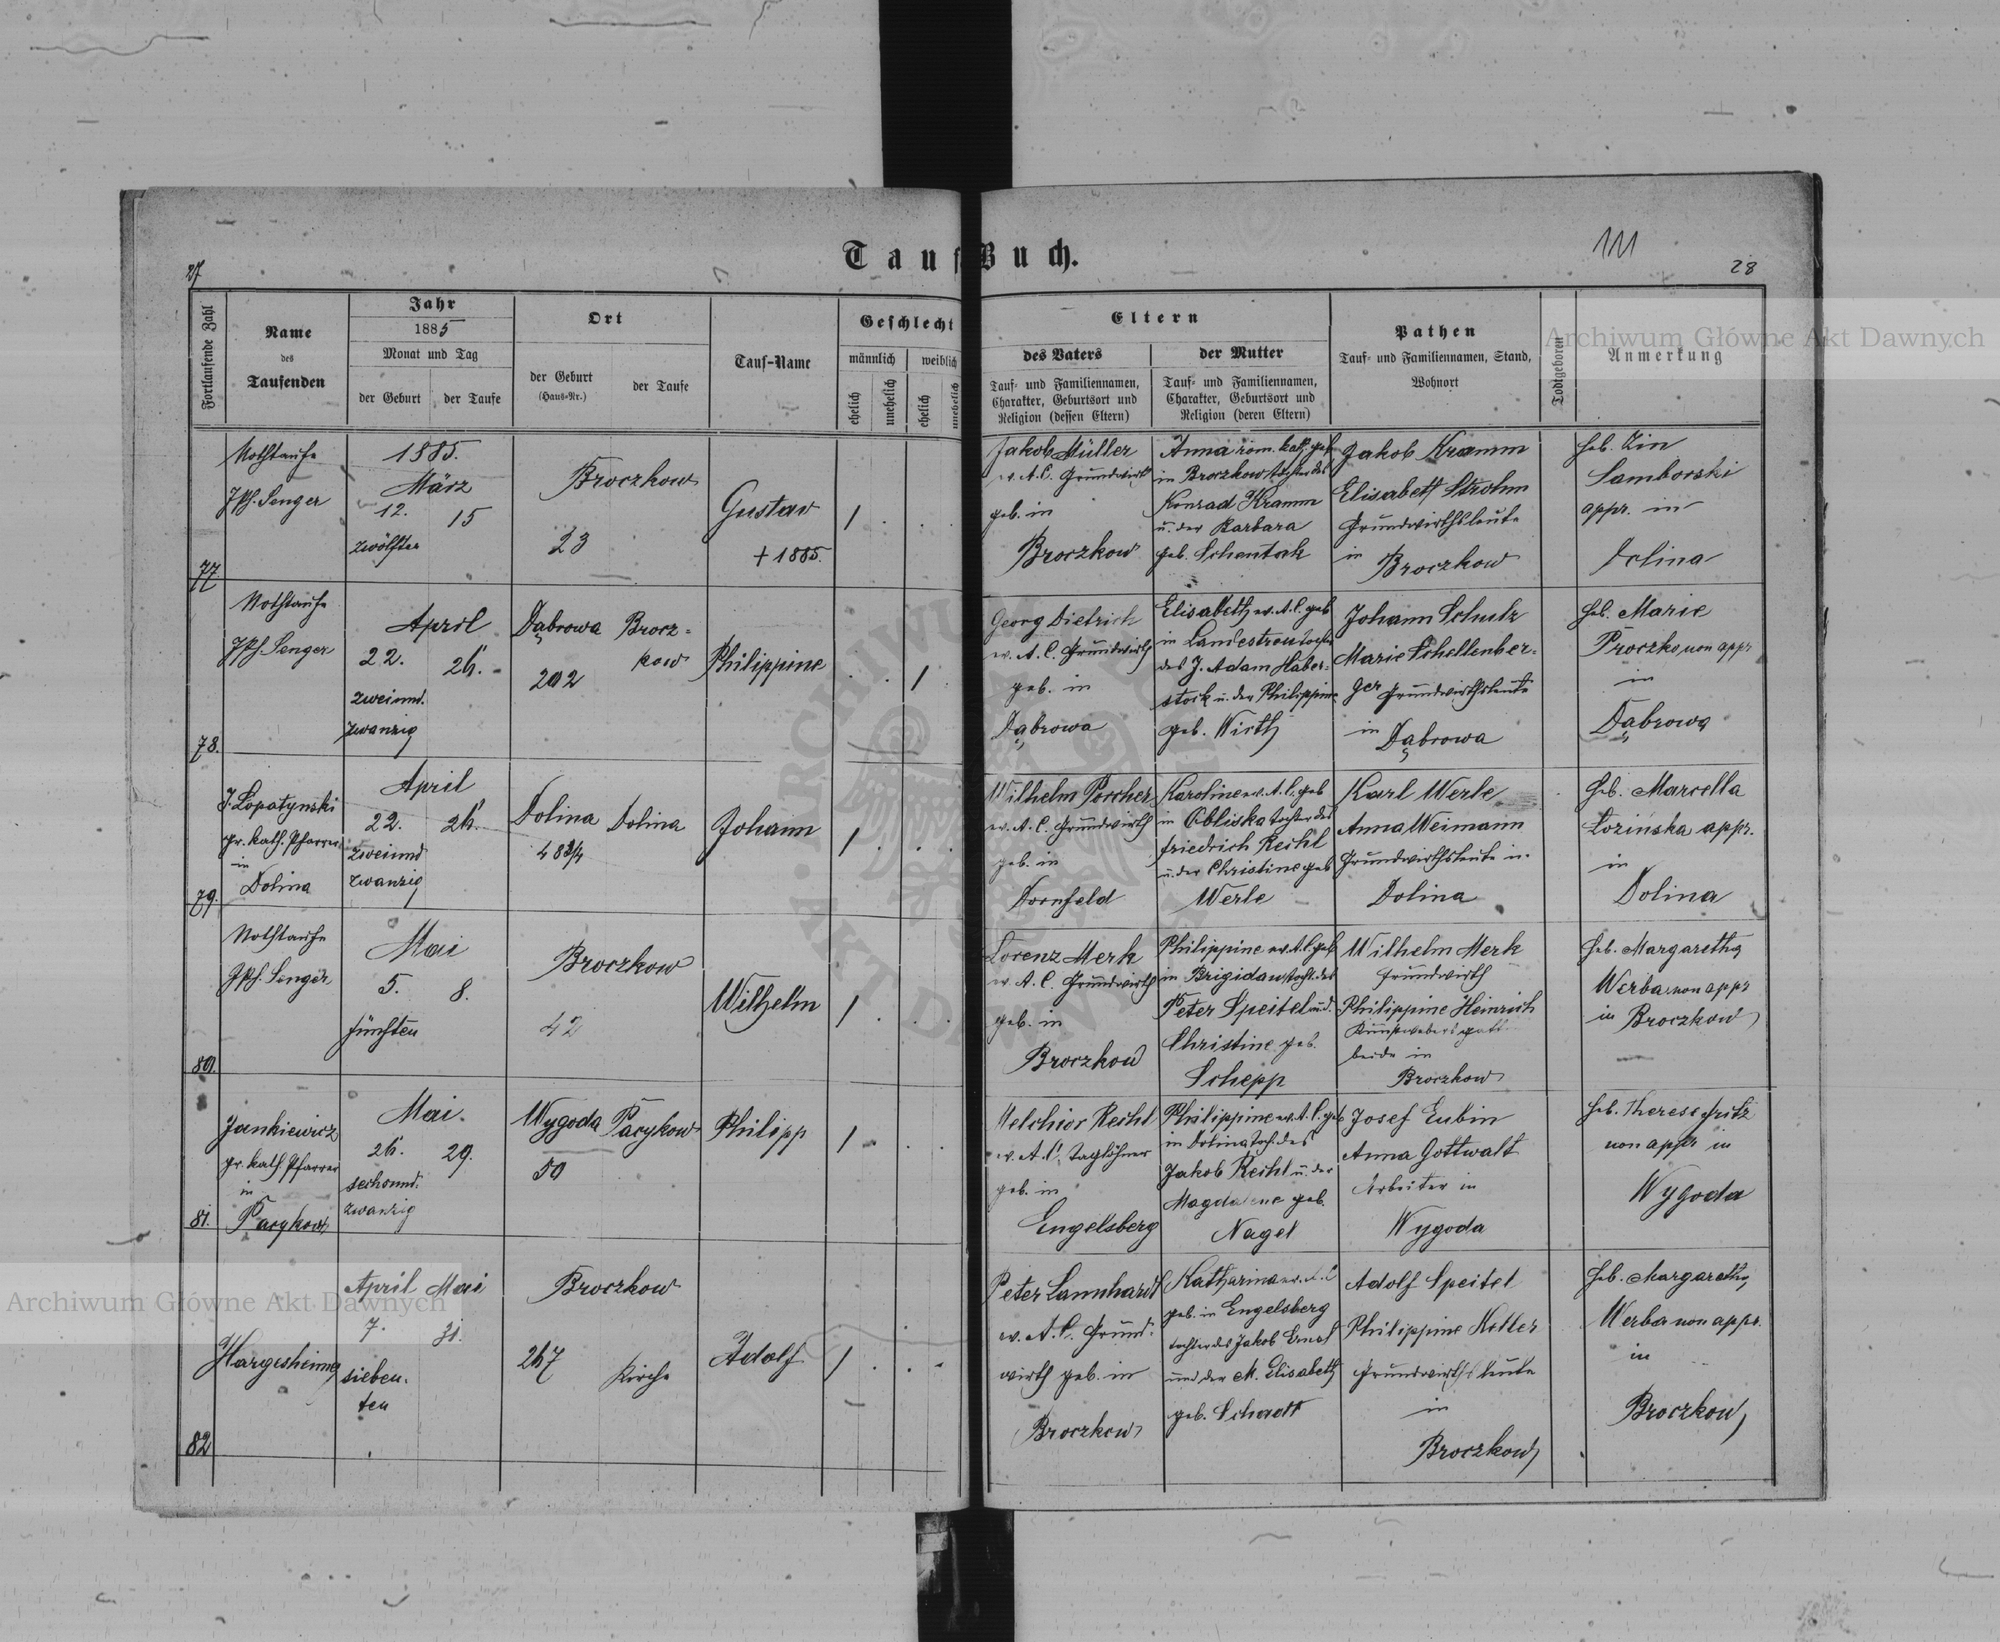 Tauf Buch.
27
111
28
Fortlaufende Zahl
Name
des
Taufenden
Jahr
1885
Monat und Tag
der Geburt
der Taufe
Ort
der Geburt
(Haus-Nr.)
der Taufe
Tauf-Name
Geschlecht
männlich
weiblich
ehelich
unehelich
ehelich
unehelich
Eltern
des Vaters
Tauf- und Familiennamen,
Charakter, Geburtsort und
Religion (dessen Eltern)
der Mutter
Tauf- und Familiennamen,
Charakter, Geburtsort und
Religion (deren Eltern)
Pathen
Tauf- und Familiennamen, Stand,
Wohnort
Todtgeboren
Anmerkung
77.
Nothtaufe
Jph. Senger
1885.
März
12. 15
zwölften
Broczkow
23
Gustav
+ 1885.
1
Jakob Müller
ev. A. C. Grundwirth
geb. in
Broczkow
Anna röm. kath. geb.
in Broczkow Tochter des
Konrad Kramm
u. der Barbara
geb.
Jakob Kramm
Elisabeth Strohm
Grundwirthsleute
in
Broczkow
Heb.
Samborski
appr. in
Dolina
78.
Nothtaufe
Jph. Senger
April
22. 26.
zweiund
zwanzig
Dąbrowa
202
Brocz=
kow
Philippine
1
Georg Dietrich
ev. A. C. Grundwirth
geb. in
Dąbrowa
Elisabeth ev. A. C. geb
in Landestreu Tochter
des J. Adam Haber=
stock u. der Philippine
geb. Wirth
Johann Schutz
Marie Schellenber=
ger Grundwirthsleute
in
Dąbrowa
Heb. Marie
Proczko non appr
in
Dąbrowa
79.
J. Lopatynski
gr. kath. Pfarrer
in
Dolina
April
22. 26.
zweiund
zwanzig
Dolina
48 3/4
Dolina
Johann
1
Wilhelm Porcher
ev. A. C. Grundwirth
geb. in
Dornfeld
Karoline ev. A. C. geb
in Obliska Tochter des
Friedrich Reihl
u. der Christine geb
Werle
Karl Werle
Anna Weimann
Grundwirthsleute in
Dolina
Heb. Marcella
Łozińska appr.
in
Dolina
80.
Nothtaufe
Jph. Senger
Mai
5. 8.
fünften
Broczkow
42
Wilhelm
1
Lorenz Merk
ev. A. C. Grundwirth
geb. in
Broczkow
Philippine ev. A. C. geb
in Brigidau Tocht. des
Peter Speitel und
Christine geb.
Schepp
Wilhelm Merk
Grundwirth
Philippine Heinrich
beide in
Broczkow
Heb. Margaretha
Werba non appr
in Broczkow
81.
Jankiewicz
gr. kath. Pfarrer
in
Pacykow
Mai.
26. 29.
sechsund
zwanzig
Wygoda
50
Pacykow
Philipp
1
Melchior Reihl
ev. A. C. Taglöhner
geb. in
Engelsberg
Philippine ev. A. C. geb
in Dolina Toch. des
Jakob Reihl u. der
Magdalene geb.
Nagel
Josef Eubin
Anna Gottwalt
Arbeiter in
Wygoda
Heb. Therese Fritz
non appr in
Wygoda
82
Hargesheimer
April Mai
7. 31.
sieben.
ten
Broczkow
267
Kirche
Adolf
1
Peter Lannhardt
ev. A. C. Grund.
wirth geb. in
Broczkow
Katharina ev. A. C
geb. in Engelsberg
Tochter des Jakob Ernst
und der M. Elisabeth
geb. Schadt
Adolf Speitel
Philippine Keller
Grundwirthsleute
in
Broczkow
Heb. Margaretha
Werba non appr.
in
Broczkow
Archiwum Główne Akt Dawnych
Archiwum Główne Akt Dawnych